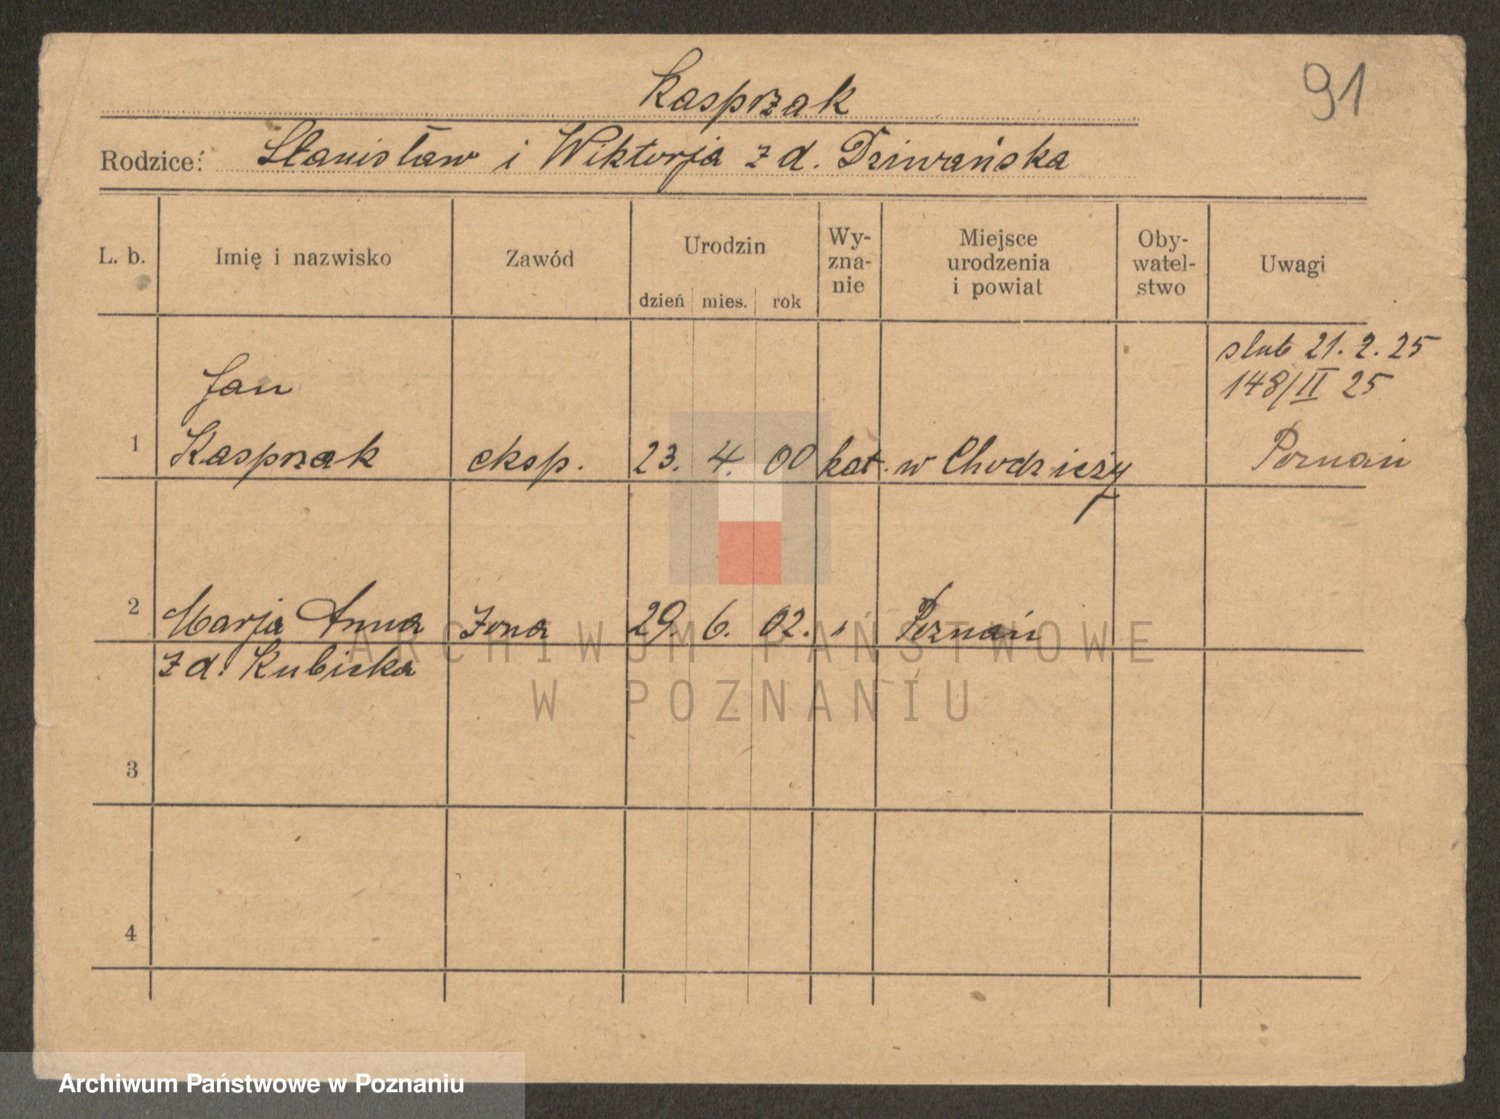 91
Kasprzak
Rodzice: Stanisław i Wiktorja z d. Dziwańska
L. b. Imię i nazwisko Zawód Urodzin dzień mies. rok Wy-
zna-
nie Miejsce
urodzenia
i powiat Oby-
watel-
stwo Uwagi
slub 21. 2. 25
148/II 25
Jan
1 Kasprzak eksp. 23. 4. 00 kat. w Chodzieży Poznań
2 Marja Anna żona 29. 6. 02. " Poznań
z d. Kubicka
3
4
ARCHIWUM PAŃSTWOWE
W POZNANIU
Archiwum Państwowe w Poznaniu